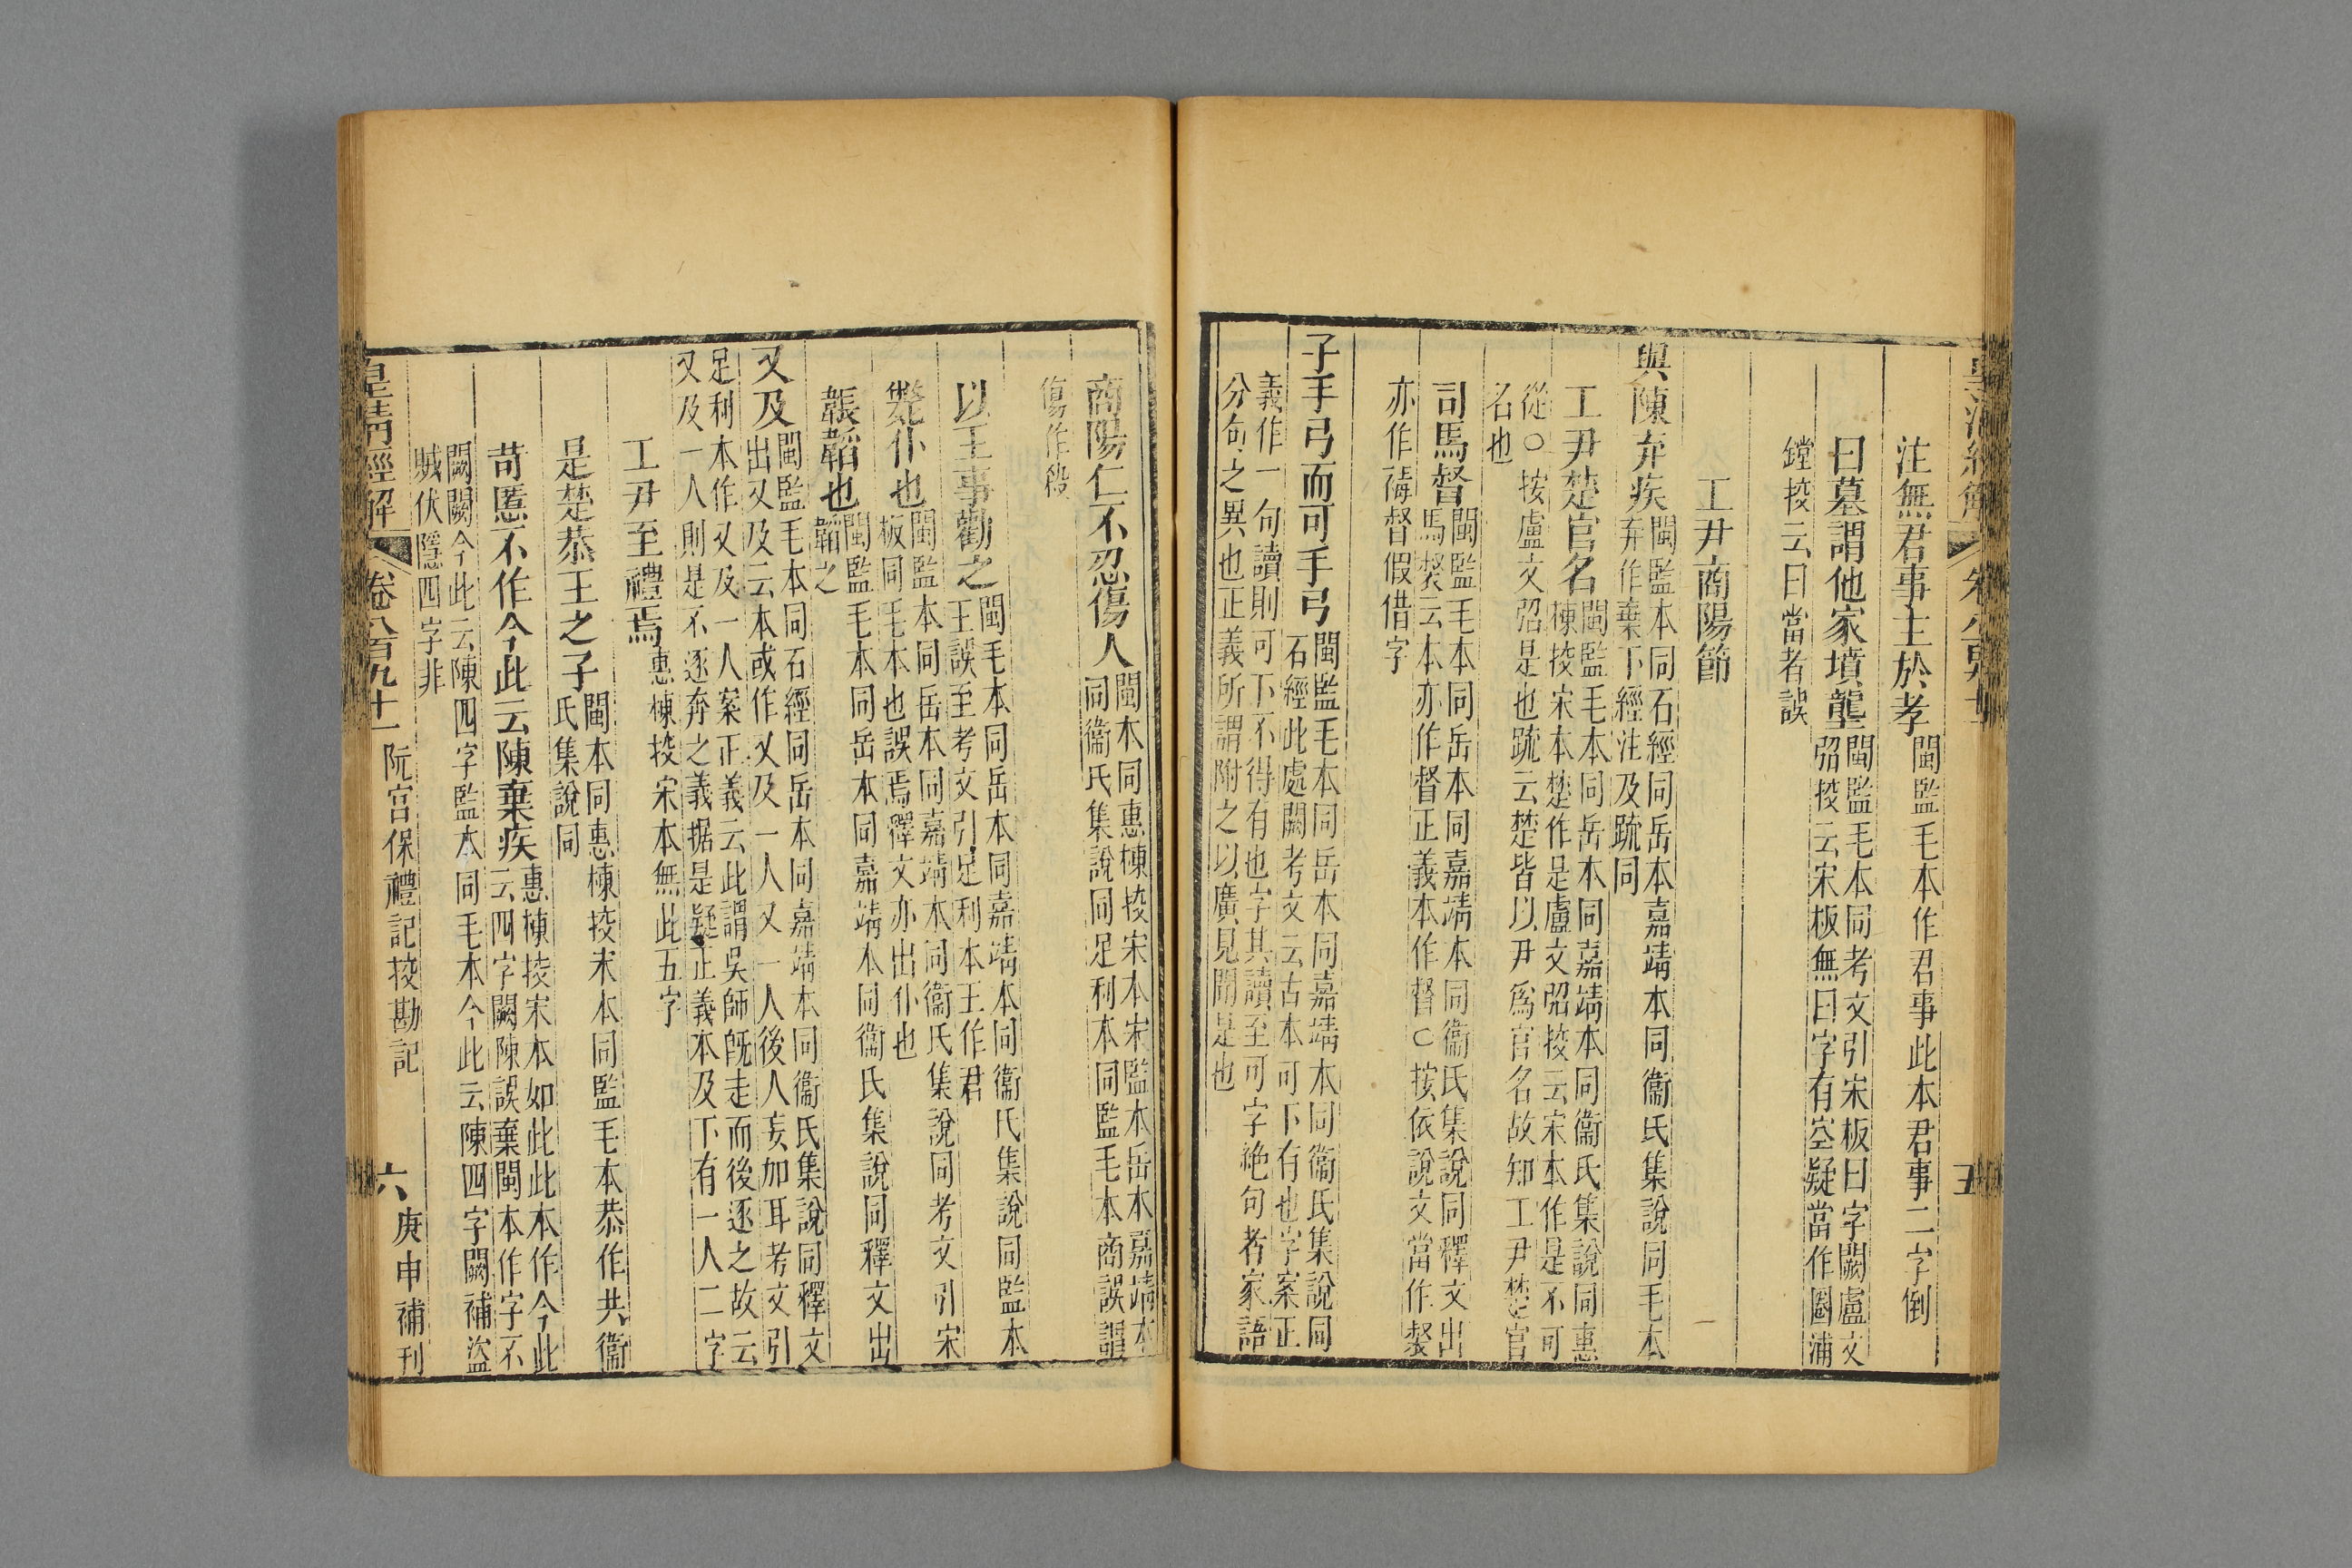 皇淸經解 卷八百九十一 五
注無君事主於孝 閩監毛本作君事此本君事二字倒
曰墓謂他家墳壟 閩監毛本同考文引宋板曰字闕盧文
弨挍云宋板無曰字有空疑當作圏浦
鏜挍云曰當者誤
工尹商陽節
與陳弃疾 閩監本同石經同岳本嘉靖本同衞氏集說同毛本
弃作棄下經注及疏同
工尹楚官名 閩監毛本同岳本同嘉靖本同衞氏集說同惠
棟挍宋本楚作是盧文弨挍云宋本作是不可
從○按盧文弨是也疏云楚皆以尹爲官名故知工尹楚官
名也
司馬督 閩監毛本同岳本同嘉靖本同衞氏集說同釋文出
馬㮙云本亦作督正義本作督○按依說文當作裻
亦作𧛔督假借字
子手弓而可手弓 閩監毛本同岳本同嘉靖本同衞氏集說同
石經此處闕考文云古本可下有也字案正
義作一句讀則可下不得有也字其讀至可字絶句者家語
分句之異也正義所謂附之以廣見聞是也
商陽仁不忍傷人 閩本同惠棟挍宋本宋監本岳本嘉靖本
同衞氏集說同足利本同監毛本商誤謂
傷作殺
以王事勸之 閩毛本同岳本同嘉靖本同衞氏集說同監本
王誤至考文引足利本王作君
斃仆也 閩監本同岳本同嘉靖本同衞氏集說同考文引宋
板同毛本也誤焉釋文亦出仆也
韔韜也 閩監毛本同岳本同嘉靖本同衞氏集說同釋文出
韜之
又及 閩監毛本同石經同岳本同嘉靖本同衞氏集說同釋文
出又及云本或作又及一人又一人後人妄加耳考文引
足利本作又及一人案正義云此謂吳師旣走而後逐之故云
又及一人則是不逐奔之義据是疑正義本及下有一人二字
工尹至禮焉 惠棟挍宋本無此五字
是楚恭王之子 閩本同惠棟挍宋本同監毛本恭作共衞
氏集說同
苛慝不作今此云陳棄疾 惠棟挍宋本如此此本作今此
云四字闕陳誤棄閩本作字不
闕闕今此云陳四字監本同毛本今此云陳四字闕補盜
賊伏隱四字非
皇淸經解 卷八百九十一 阮宮保禮記挍勘記 六 庚申補刊